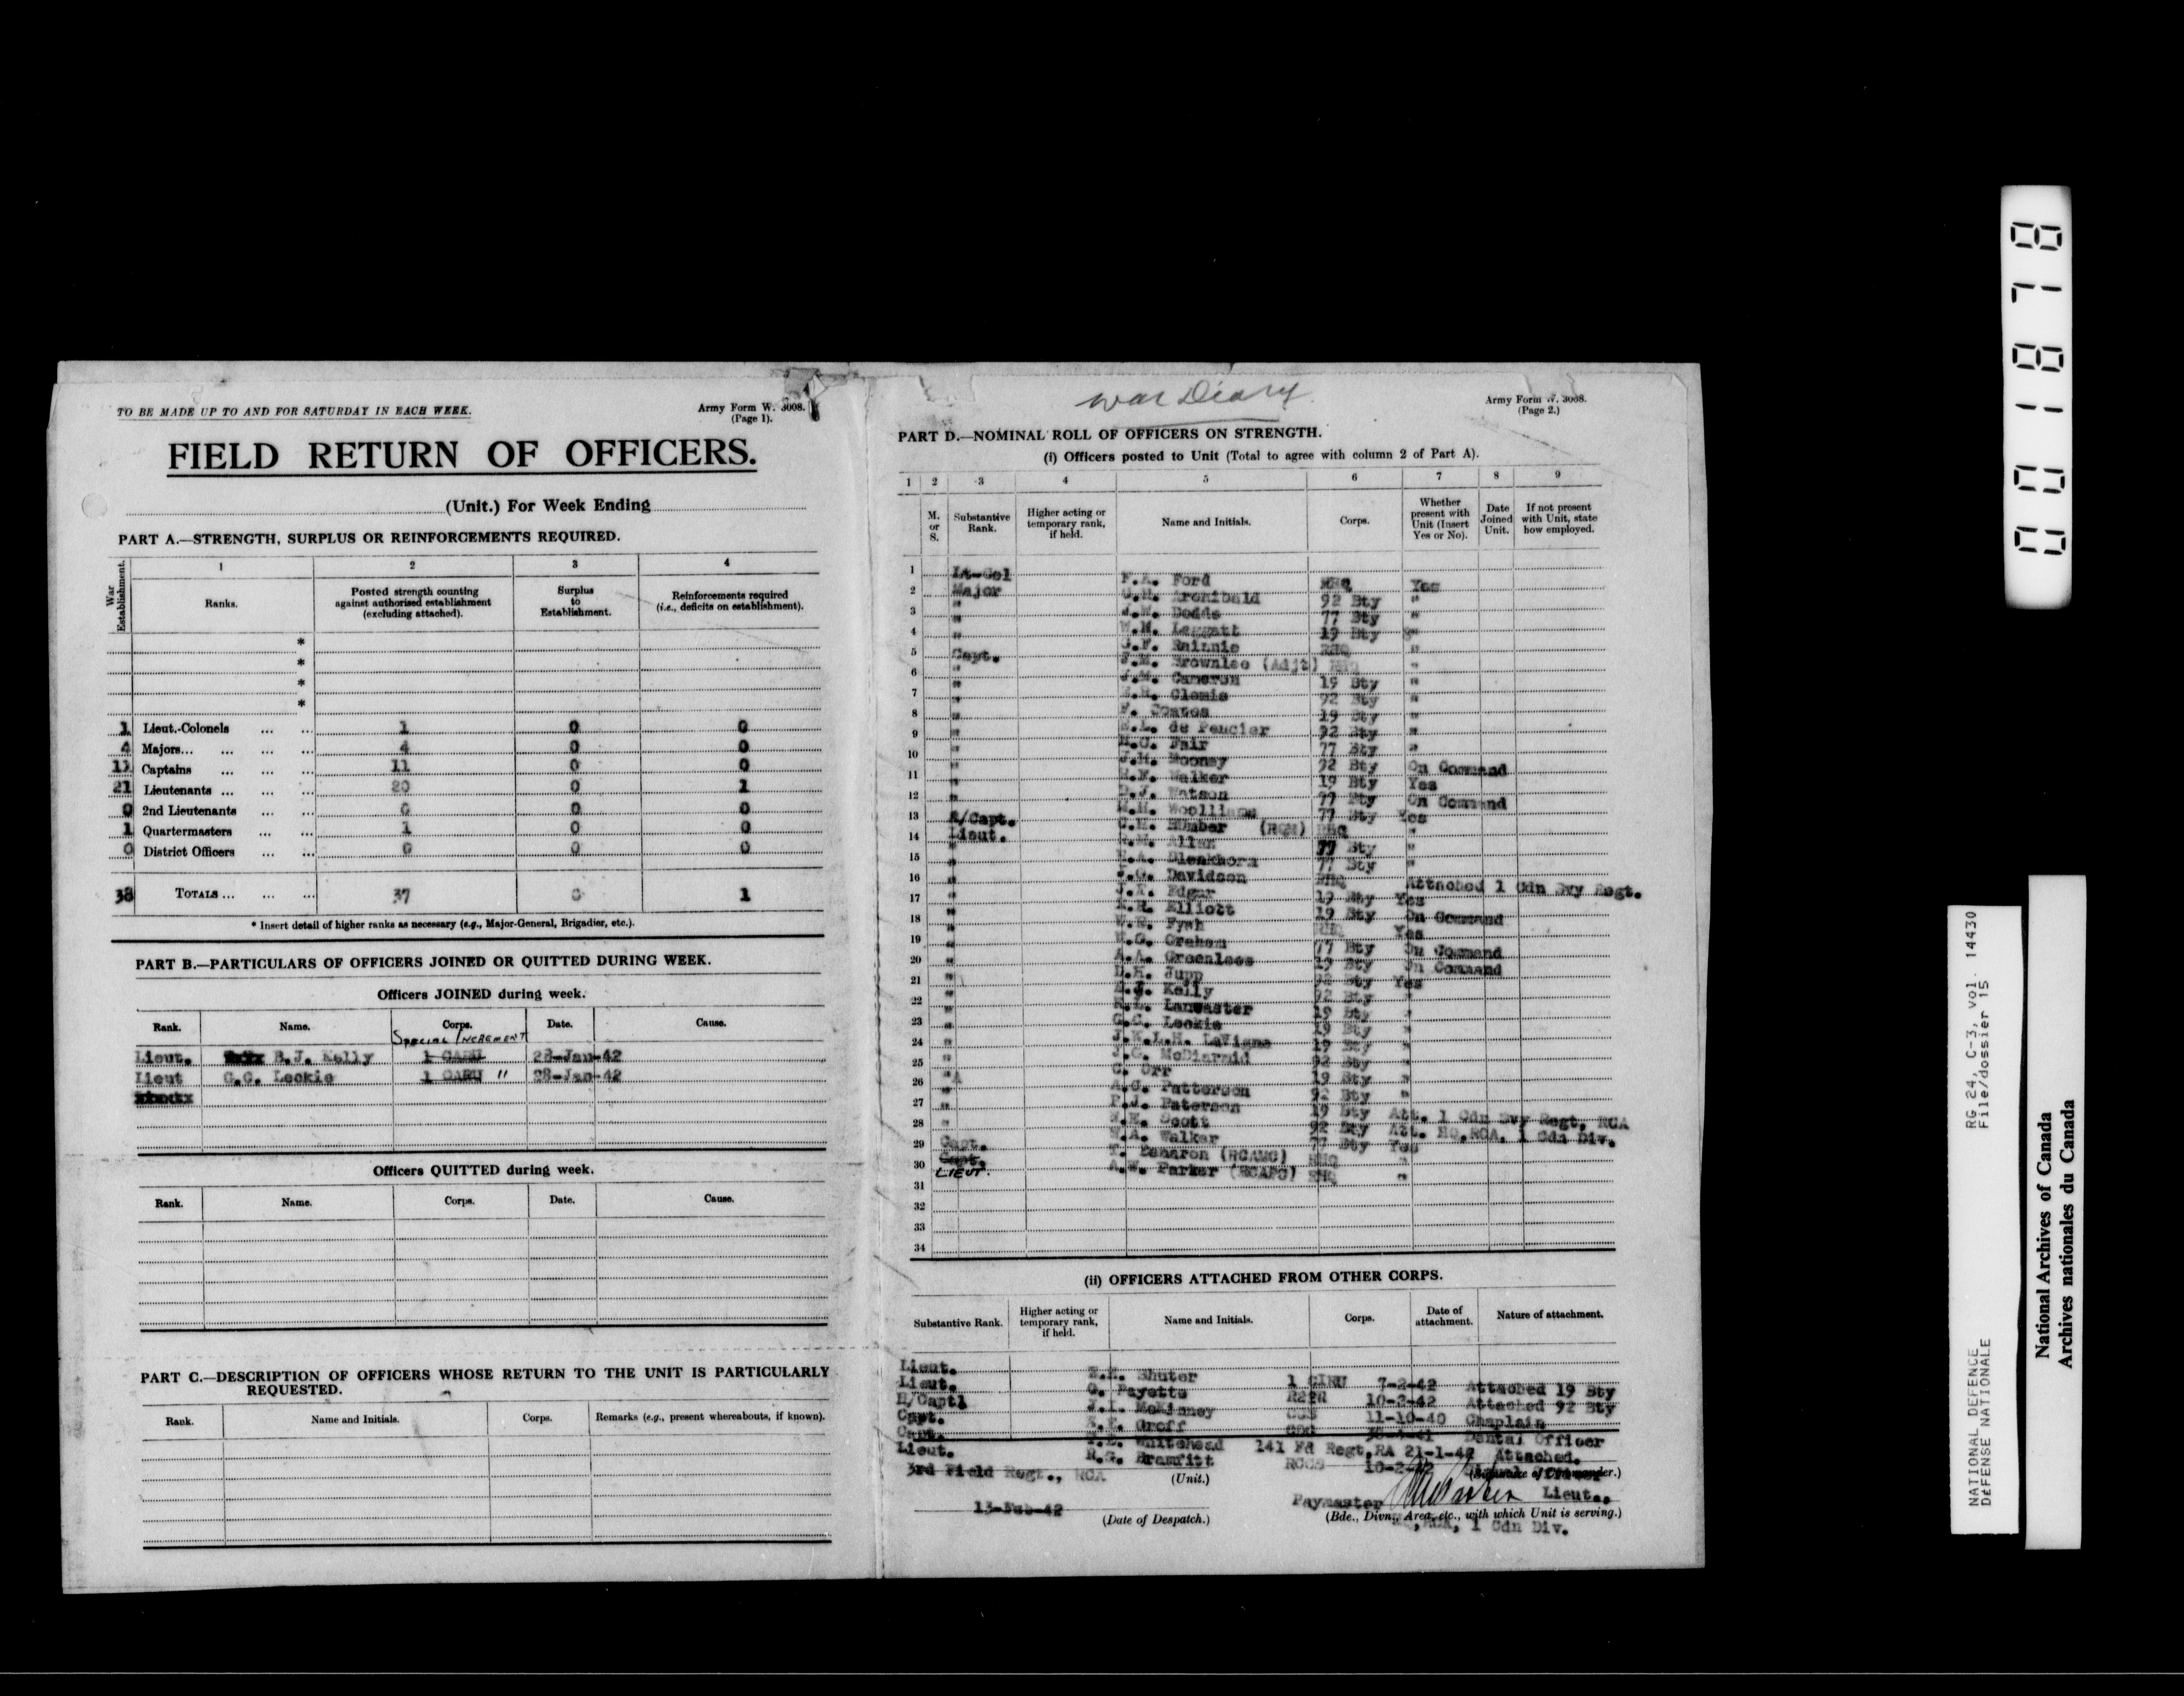 TO BE MADE UP TO AND FOR SATURDAY IN EACH WEEK.
Army Form W. 3008.
(Page 1).
FIELD RETURN OF OFFICERS.
(Unit.) For Week Ending
PART A.—STRENGTH, SURPLUS OR REINFORCEMENTS REQUIRED.
War Establishment.
1 2 3 4
Ranks. Posted strength counting against authorised establishment (excluding attached). Surplus to Establishment. Reinforcements required (i.e., deficits on establishment).
*
*
*
*
1 Lieut.-Colonels ... ... 1 0 0
4 Majors... ... ... ... 4 0 0
11 Captains ... ... ... 11 0 0
21 Lieutenants ... ... ... 20 0 1
0 2nd Lieutenants ... ... 0 0 0
1 Quartermasters ... ... 1 0 0
0 District Officers ... ... 0 0 0
38 TOTALS ... ... ... 37 0 1
* Insert detail of higher ranks as necessary (e.g., Major-General, Brigadier, etc.).
PART B.—PARTICULARS OF OFFICERS JOINED OR QUITTED DURING WEEK.
Officers JOINED during week.
Rank. Name. Corps. Date. Cause.
SPECIAL INCREMENT
Lieut. B.J. Kelly 1 CARU 28-Jan-42
Lieut G.G. Leckie 1 CARU " 28-Jan-42
Officers QUITTED during week.
Rank. Name. Corps. Date. Cause.
PART C.—DESCRIPTION OF OFFICERS WHOSE RETURN TO THE UNIT IS PARTICULARLY
REQUESTED.
Rank. Name and Initials. Corps. Remarks (e.g., present whereabouts, if known).
War Diary
Army Form W. 3008.
(Page 2.)
PART D.—NOMINAL ROLL OF OFFICERS ON STRENGTH.
(i) Officers posted to Unit (Total to agree with column 2 of Part A).
1 2 3 4 5 6 7 8 9
M. or S. Substantive Rank. Higher acting or temporary rank, if held. Name and Initials. Corps. Whether present with Unit (Insert Yes or No). Date Joined Unit. If not present with Unit, state how employed.
1 Lt-Col F.A. Ford RHQ Yes
2 Major Archibald 92 Bty "
3 " J.W. Dodds 77 Bty "
4 " W.N. Leggatt 19 Bty "
5 " G.F. Rainnie RHQ "
Capt. J.M. Brownlee (Adjt) RHQ "
6 " J.M. Cameron 19 Bty "
7 " Clemis 92 Bty "
8 " F. Coates 19 Bty "
9 " de Pencier 92 Bty "
10 " Fair 77 Bty "
" J.H. Mooney 92 Bty On Command
11 " Walker 19 Bty Yes
12 " D.J. Watson 77 Bty On Command
" Woolliams 77 Bty Yes
13 A/Capt. Humber (RQM) RHQ "
14 Lieut. Allan 77 Bty "
15 " Blenkhorn 77 Bty "
16 " Davidson RHQ Attached 1 Cdn Svy Regt.
17 " Edgar 19 Bty Yes
" Elliott 19 Bty On Command
18 " W.R. Fysh RHQ Yes
19 " Graham 77 Bty On Command
20 " A.A. Greenlees 19 Bty On Command
21 " D.H. Jupp 92 Bty Yes
" B.J. Kelly 92 Bty "
22 " Lancaster 19 Bty "
23 " G.G. Leckie 19 Bty "
24 " J.K.L.H. LaVigne 19 Bty "
25 " J.G. McDiarmid 92 Bty "
26 " Orr 19 Bty "
27 " Patterson 92 Bty "
" Paterson 19 Bty Att. 1 Cdn Svy Regt, RCA
28 " Scott 92 Bty Att. HQ,RCA, 1 Cdn Div.
W.A. Walker 77 Bty Yes
29 Capt. (RCAMC) RHQ "
30 Capt. LIEUT. A.W. Parker (RCAPC) RHQ "
31
32
33
34
(ii) OFFICERS ATTACHED FROM OTHER CORPS.
Substantive Rank. Higher acting or temporary rank, if held. Name and Initials. Corps. Date of attachment. Nature of attachment.
Lieut. Shuter 1 CIRU 7-2-42 Attached 19 Bty
Lieut. G. Payette R22R 10-2-42 Attached 92 Bty
H/Captl J.I. McKinney 11-10-40 Chaplain
Capt. Groff CDC Dental Officer
Capt. Whitehead 141 Fd Regt,RA 21-1-42 Attached.
Lieut. Bramfitt RCCS
3rd Field Regt., RCA (Unit.) (Signature of Commander.)
Paymaster Lieut.
13-Feb-42
(Date of Despatch.) (Bde., Divn., Area, etc., with which Unit is serving.)
HQ,RCA, 1 Cdn Div.
001878
RG 24, C-3, vol. 14430
File/dossier 15
NATIONAL DEFENCE
DÉFENSE NATIONALE
National Archives of Canada
Archives nationales du Canada